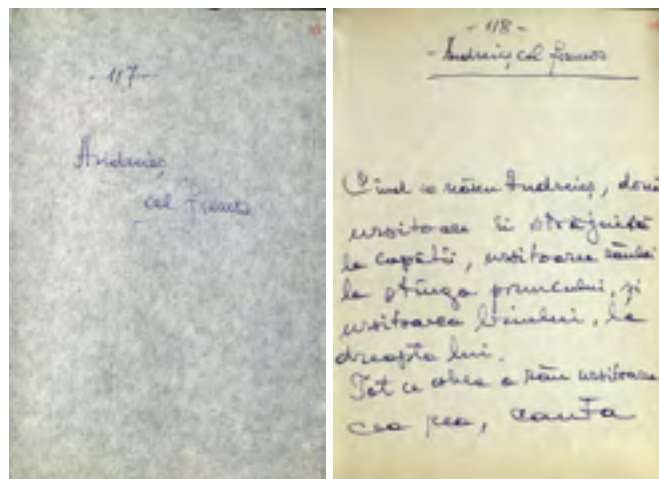 -117-
Andrieș
cel frumos
- 118 -
- Andrieș cel frumos
Cînd se născu Andrieș, două
ursitoare îi străjuiră
la capătîi, ursitoarea răului
la stînga pruncului, și
ursitoarea binelui, la
dreapta lui.
Tot ce ursitoarea
cea rea, cauta